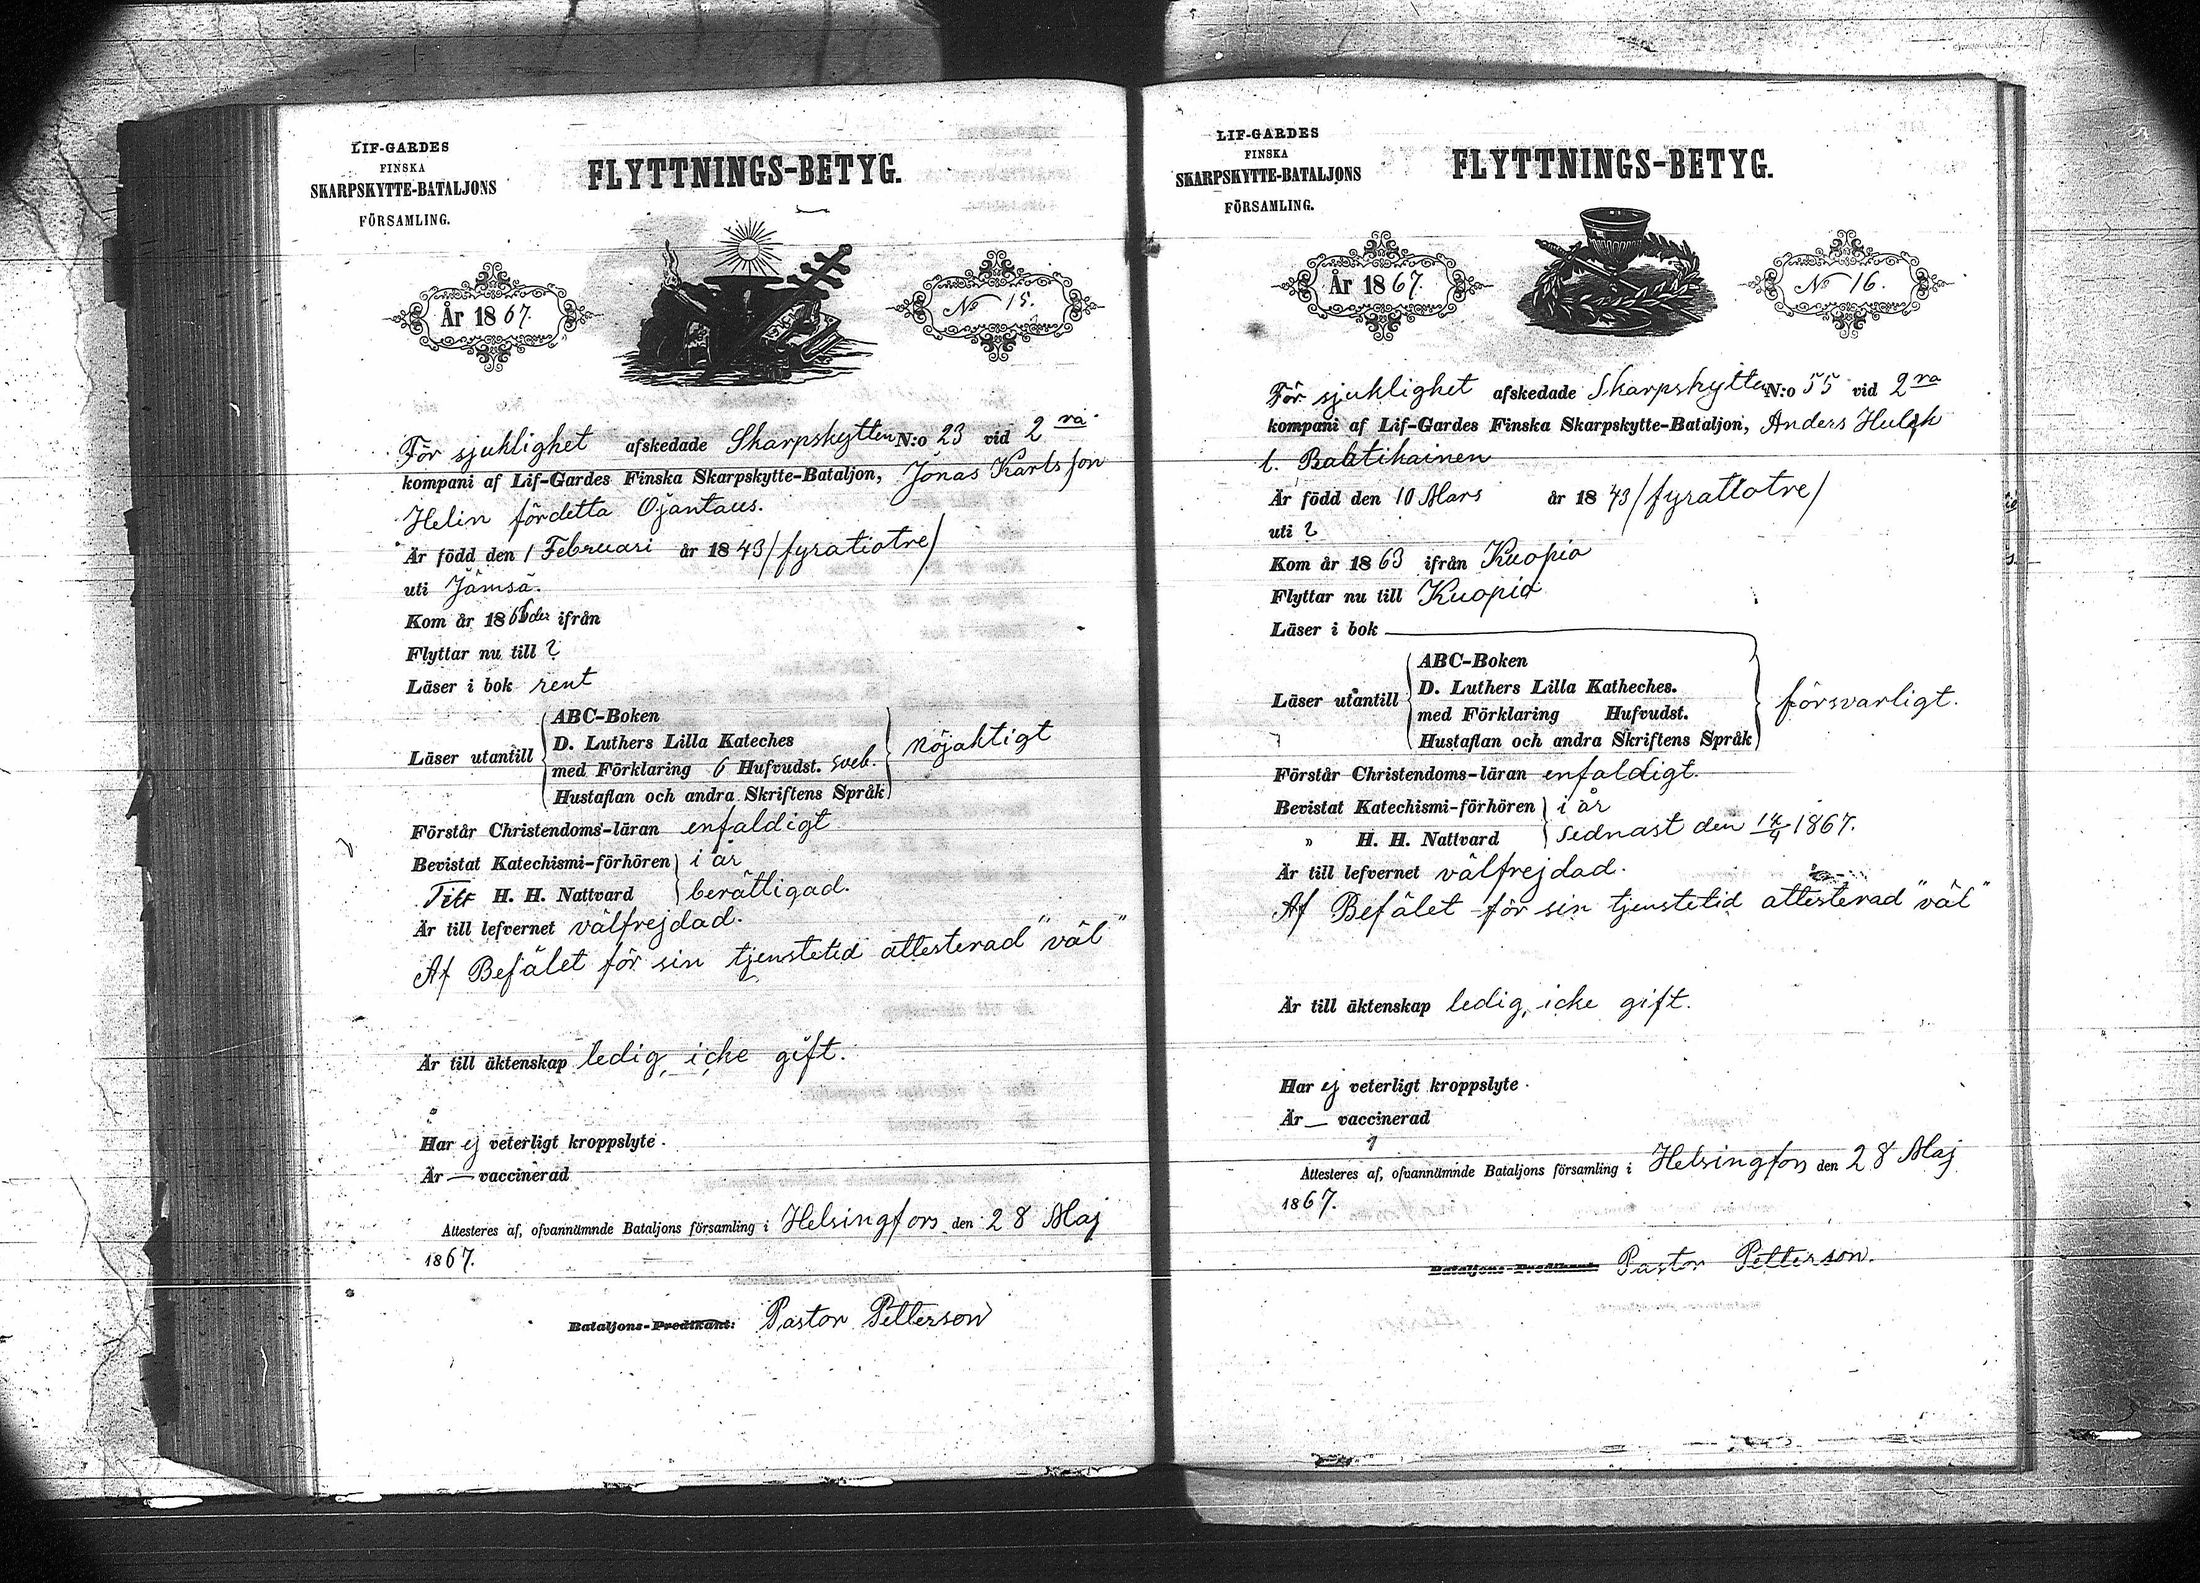 LIF-GARDES
FINSKA
SKARPSKYTTE-BATALJONS
FÖRSAMLING.
FLYTTNINGS-BETYG.
År 1867.
No 15.
För sjuklighet afskedade Skarpskytten N:o 23 vid 2ra
kompani af Lif-Gardes Finska Skarpskytte-Bataljon, Jonas Karlsson
Helin fördetta Ojantaus.
Är född den 1 Februari år 1843 /fyratiotre/
uti Jämsä.
Kom år 1866 ifrån
Flyttar nu till ?
Läser i bok rent
Läser utantill
ABC-Boken
D. Luthers Lilla Kateches
med Förklaring 6 Hufvudst. sveb.
Hustaflan och andra Skriftens Språk
nöjaktigt
Förstår Christendoms-läran enfaldigt
Bevistat Katechismi-förhören i år
Till H. H. Nattvard berättigad.
Är till lefvernet välfrejdad.
Af Befälet för sin tjenstetid attesterad "väl"
Är till äktenskap ledig, icke gift.
Har ej veterligt kroppslyte.
Är — vaccinerad
Attesteres af, ofvannämnde Bataljons församling i Helsingfors den 28 Maj
1867.
Bataljons-Predikant: Pastor Petterson
LIF-GARDES
FINSKA
SKARPSKYTTE-BATALJONS
FÖRSAMLING.
FLYTTNINGS-BETYG.
År 1867.
No 16.
För sjuklighet afskedade Skarpskytten N:o 55 vid 2ra
kompani af Lif-Gardes Finska Skarpskytte-Bataljon, Anders
l.
Är född den 10 Mars år 1843 /fyratiotre/
uti ?
Kom år 1863 ifrån Kuopio
Flyttar nu till Kuopio
Läser i bok
Läser utantill
ABC-Boken
D. Luthers Lilla Katheches.
med Förklaring Hufvudst.
Hustaflan och andra Skriftens Språk
försvarligt.
Förstår Christendoms-läran enfaldigt.
Bevistat Katechismi-förhören i år
" H. H. Nattvard sednast den 14/4 1867.
Är till lefvernet välfrejdad.
Af Befälet för sin tjenstetid attesterad "väl"
Är till äktenskap ledig, icke gift.
Har ej veterligt kroppslyte.
Är — vaccinerad
Attesteres af, ofvannämnde Bataljons församling i Helsingfors den 28 Maj
1867.
Bataljons-Predikant Pastor Petterson.